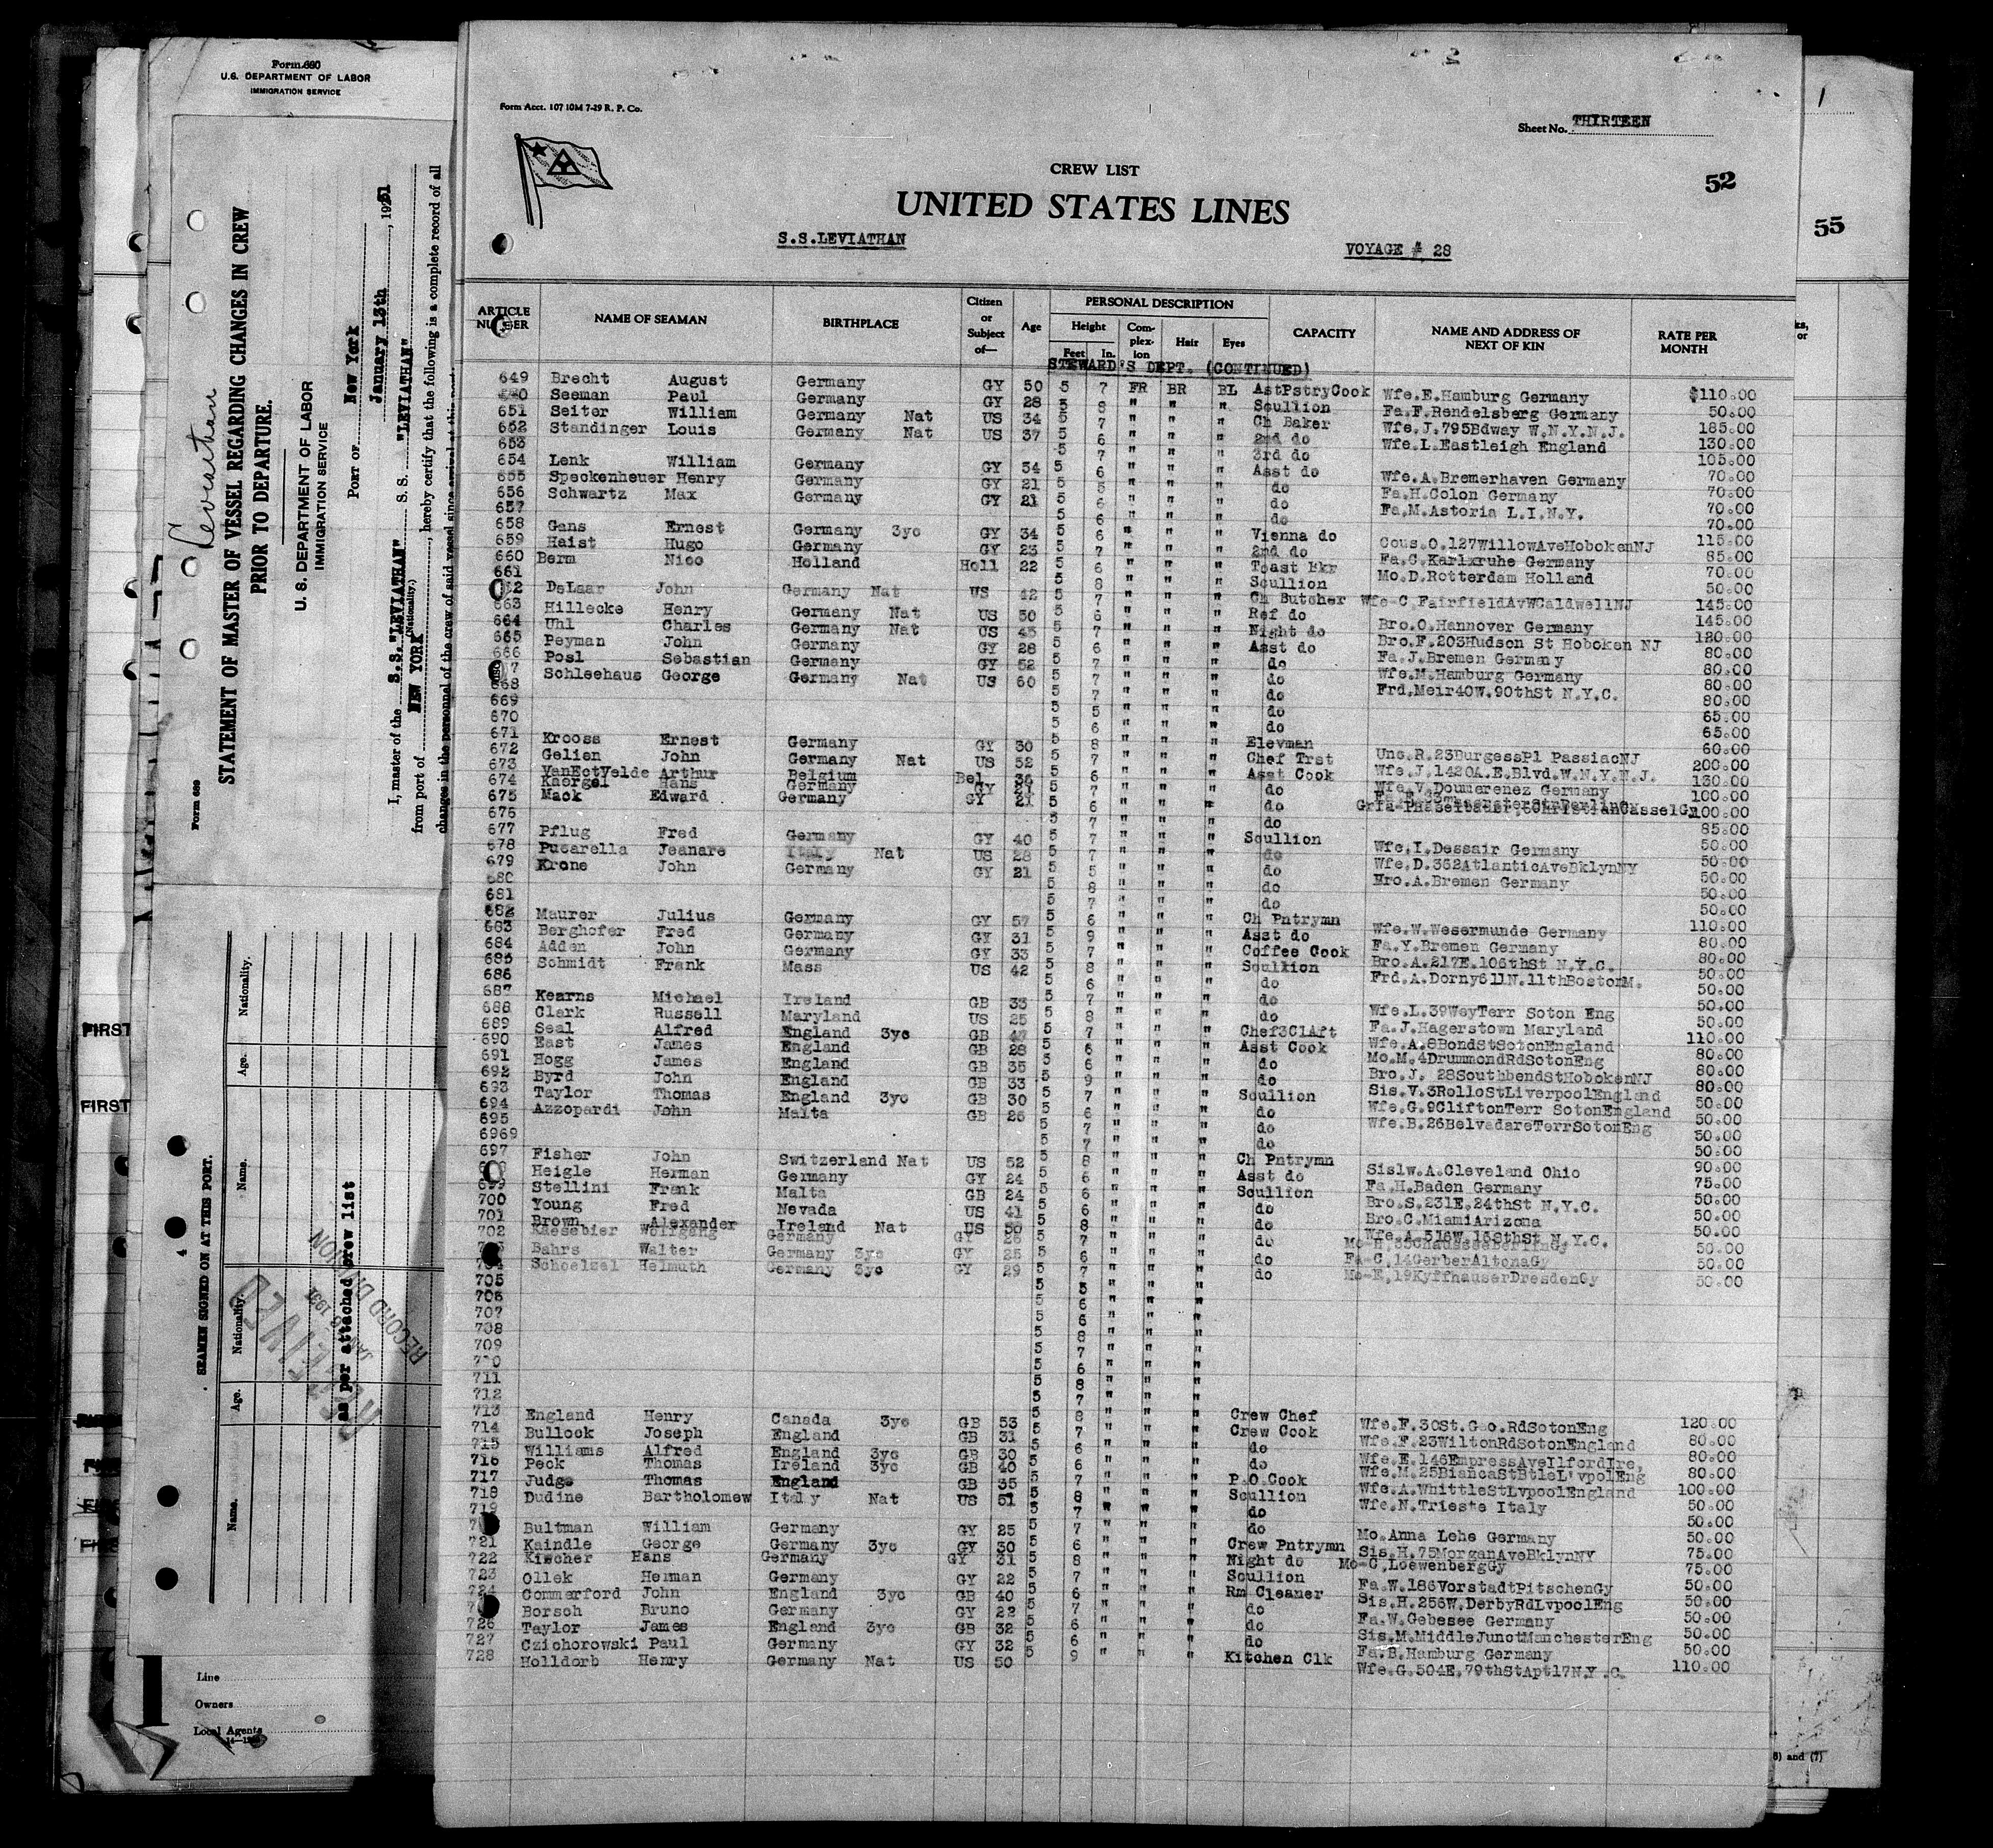 Form 680
U.S. DEPARTMENT OF LABOR
IMMIGRATION SERVICE
Leviathan
Form 689
STATEMENT OF MASTER OF VESSEL REGARDING CHANGES IN CREW
PRIOR TO DEPARTURE.
U. S. DEPARTMENT OF LABOR
IMMIGRATION SERVICE
Port of New York
January 13th, 1931
I, master of the S.S."LEVIATHAN" S. S. "LEVIATHAN"
(Nationality.)
from port of NEW YORK, hereby certify that the following is a complete record of all
changes in the personnel of the crew of said vessel since arrival at this port:
SEAMEN SIGNED ON AT THIS PORT.
Name. Age. Nationality. Name. Age. Nationality.
as per attached crew list
RECEIVED
JAN 1931
RECORD DIVISION
FIRST
FIRST
Line
Owners
Local Agents
Form Acct. 107 10M 7-29 R. P. Co.
Sheet No. THIRTEEN
CREW LIST
52
UNITED STATES LINES
55
S.S.LEVIATHAN VOYAGE # 28
ARTICLE NUMBER NAME OF SEAMAN BIRTHPLACE Citizen or Subject of— Age PERSONAL DESCRIPTION Height Feet In. Complexion Hair Eyes CAPACITY NAME AND ADDRESS OF NEXT OF KIN RATE PER MONTH
STEWARD'S DEPT. (CONTINUED)
649 Brecht August Germany GY 50 5 7 FR BR BL AstPstryCook Wfe.E.Hamburg Germany $110.00
650 Seeman Paul Germany GY 28 5 8 " " " Scullion Fa.F.Rendelsberg Germany 50.00
651 Seiter William Germany Nat US 34 5 7 " " " Ch Baker Wfe.J.795Bdway W.N.Y.N.J. 185.00
652 Standinger Louis Germany Nat US 37 5 6 " " " 2nd do Wfe.L.Eastleigh England 130.00
653 5 7 " " " 3rd do 105.00
654 Lenk William Germany GY 54 5 6 " " " Asst do Wfe.A.Bremerhaven Germany 70.00
655 Speckenheuer Henry Germany GY 21 5 5 " " " do Fa.H.Colon Germany 70.00
656 Schwartz Max Germany GY 21 5 6 " " " do Fa.M.Astoria L.I.N.Y. 70.00
657 5 6 " " " do 70.00
658 Gans Ernest Germany 3yc GY 34 5 6 " " " Vienna do Cous.O.127WillowAveHobokenNJ 115.00
659 Haist Hugo Germany GY 23 5 7 " " " 2nd do Fa.C.Karlxruhe Germany 85.00
660 Berm Nico Holland Holl 22 5 6 " " " Toast Bkr Mo.D.Rotterdam Holland 70.00
661 5 8 " " " Scullion 50.00
662 DeLaar John Germany Nat US 42 5 7 " " " Ch Butcher Wfe-C,FairfieldAvWCaldwellNJ 145.00
663 Hillecke Henry Germany Nat US 50 5 6 " " " Ref do Bro.O.Hannover Germany 145.00
664 Uhl Charles Germany Nat US 45 5 7 " " " Night do Bro.F.203Hudson St Hoboken NJ 120.00
665 Peyman John Germany GY 28 5 6 " " " Asst do Fa.J.Bremen Germany 80.00
666 Posl Sebastian Germany GY 52 5 7 " " " do Wfe.M.Hamburg Germany 80.00
667 Schleehaus George Germany Nat US 60 5 7 " " " do Frd.Meir40W.90thSt N.Y.C. 80.00
668 5 7 " " " do 80.00
669 5 5 " " " do 65.00
670 5 6 " " " do 65.00
671 Krooss Ernest Germany GY 30 5 8 " " " Elevman Unc.R.23BurgessPl PassiacNJ 60.00
672 Gelien John Germany Nat US 52 5 7 " " " Chef Trst Wfe.J.1420A.E.Blvd.W.N.Y.N.J. 200.00
673 VanEctVelde Arthur Belgium Bel. 36 5 6 " " " Asst Cook Wfe.V.Doumerenez Germany 130.00
674 Kaergel Hans Germany GY 21 5 7 " " " do 100.00
675 Mack Edward Germany GY 21 5 6 " " " do 100.00
676 5 7 " " " do 85.00
677 Pflug Fred Germany GY 40 5 7 " " " Scullion Wfe.I.Dessair Germany 50.00
678 Pucarella Jeanare Italy Nat US 28 5 7 " " " do Wfe.D.362AtlanticAveBklynNY 50.00
679 Krone John Germany GY 21 5 5 " " " do Bro.A.Bremen Germany 50.00
680 5 8 " " " do 50.00
681 5 7 " " " do 50.00
682 Maurer Julius Germany GY 57 5 6 " " " Ch Pntrymn Wfe.W.Wesermunde Germany 110.00
683 Berghofer Fred Germany GY 31 5 9 " " " Asst do Fa.Y.Bremen Germany 80.00
684 Adden John Germany GY 33 5 7 " " " Coffee Cook Bro.A.217E.106thSt N.Y.C. 80.00
685 Schmidt Frank Mass US 42 5 8 " " " Scullion Frd.A.Dorny611N.11thBostonM. 50.00
686 5 6 " " " do 50.00
687 Kearns Michael Ireland GB 35 5 7 " " " do Wfe.L.39WeyTerr Soton Eng 50.00
688 Clark Russell Maryland US 25 5 8 " " " do Fa.J.Hagerstown Maryland 50.00
689 Seal Alfred England 3yc GB 47 5 7 " " " Chef3ClAft Wfe.A.8BondStSotonEngland 110.00
690 East James England GB 28 5 6 " " " Asst Cook Mo.M.4DrummondRdSotonEng 80.00
691 Hogg James England GB 35 5 6 " " " do Bro.J. 28SouthbendStHobokenNJ 80.00
692 Byrd John England GB 33 5 9 " " " do Sis.V.3RolloStLiverpoolEngland 80.00
693 Taylor Thomas England 3yc GB 30 5 7 " " " Scullion Wfe.G.9CliftonTerr SotonEngland 50.00
694 Azzopardi John Malta GB 26 5 6 " " " do Wfe.B.26BelvadareTerrSotonEng 50.00
695 5 7 " " " do 50.00
6969 5 7 " " " do 50.00
697 Fisher John Switzerland Nat US 52 5 8 " " " Ch Pntrymn Sislw.A.Cleveland Ohio 90.00
698 Heigle Herman Germany GY 24 5 6 " " " Asst do Fa.H.Baden Germany 75.00
699 Stellini Frank Malta GB 24 5 6 " " " Scullion Bro.S.231E.24thSt N.Y.C. 50.00
700 Young Fred Nevada US 41 5 6 " " " do Bro.C.MiamiArizona 50.00
701 Brown Alexander Ireland Nat US 50 5 8 " " " do Wfe.A.516W.136thSt N.Y.C. 50.00
702 Kaesebier Wolfgang Germany GY 26 5 7 " " " do Mo-H,65ChausseeBerlinGy 50.00
703 Bahrs Walter Germany 3yc GY 25 5 6 " " " do Fa-C,14GerberAltonaGy 50.00
704 Schoelzel Helmuth Germany 3yc GY 29 5 7 " " " do Mo-E,19KyffhauserDresdenGy 50.00
705 5 5 " " "
706 5 6 " " "
707 5 6 " " "
708 5 8 " " "
709 5 7 " " "
710 5 6 " " "
711 5 8 " " "
712 5 7 " " "
713 England Henry Canada 3yc GB 53 5 8 " " " Crew Chef Wfe.F.30St.Geo.RdSotonEng 120.00
714 Bullock Joseph England GB 31 5 7 " " " Crew Cook Wfe.F.23WiltonRdSotonEngland 80.00
715 Williams Alfred England 3yc GB 30 5 6 " " " do Wfe.E.146EmpressAveIlfordIre, 80.00
716 Peck Thomas Ireland 3yc GB 40 5 6 " " " do Wfe.M.25BiancaStBtleL'vpolEng 80.00
717 Judge Thomas England GB 35 5 7 " " " P.O.Cook Wfe.A.WhittleStLvpoolEngland 100.00
718 Dudine Bartholomew Italy Nat US 51 5 8 " " " Scullion Wfe.N.Trieste Italy 50.00
719 5 7 " " " do 50.00
720 Bultman William Germany GY 25 5 7 " " " do Mo.Anna Lehe Germany 50.00
721 Kaindle George Germany 3yc GY 30 5 6 " " " Crew Pntrymn Sis.H.75MorganAveBklynNY 75.00
722 Kircher Hans Germany GY 31 5 8 " " " Night do Mo-C,LoewenbergGy 75.00
723 Ollek Herman Germany GY 22 5 7 " " " Scullion Fa.W.186VorstadtPitschenGy 50.00
724 Commerford John England 3yc GB 40 5 6 " " " Rm Cleaner Sis.H.256W.DerbyRdLvpoolEng 50.00
725 Borsch Bruno Germany GY 22 5 7 " " " do Fa.W.Gebesee Germany 50.00
726 Taylor James England 3yc GB 32 5 6 " " " do Sis.M.MiddleJunctManchesterEng 50.00
727 Czichorowski Paul Germany GY 32 5 6 " " " do Fa.B.Hamburg Germany 50.00
728 Holldorb Henry Germany Nat US 50 5 9 " " " Kitchen Clk Wfe.G.504E.79thStApt17N.Y.C. 110.00